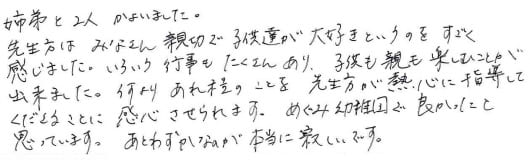 姉弟と2人 かよいました。
先生方は みなさん 親切で 子供達が 大好きというのを すごく
感じました。いろいろ 行事も たくさん あり、子供も 親も 楽しむことが
出来ました。何より あれ程の ことを 先生方が 熱心に 指導して
くださることに 感心 させられます。めぐみ幼稚園で 良かったと
思っています。 あとわずかなのが 本当に 寂しいです。